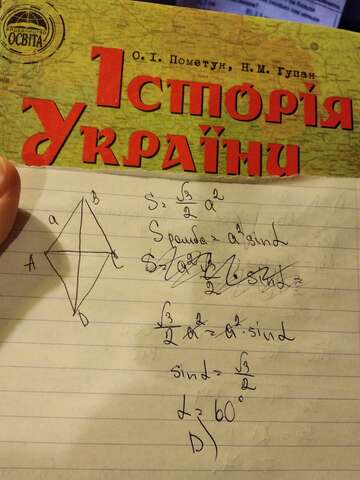 ОСВІТА
О. І. Пометун, Н. М. Гупан
Історія
України
B
a
A
C
D
S = √3/2 a²
S ромба = a² sin α
√3/2 a² = a² · sin α
sin α = √3/2
α = 60°
D)